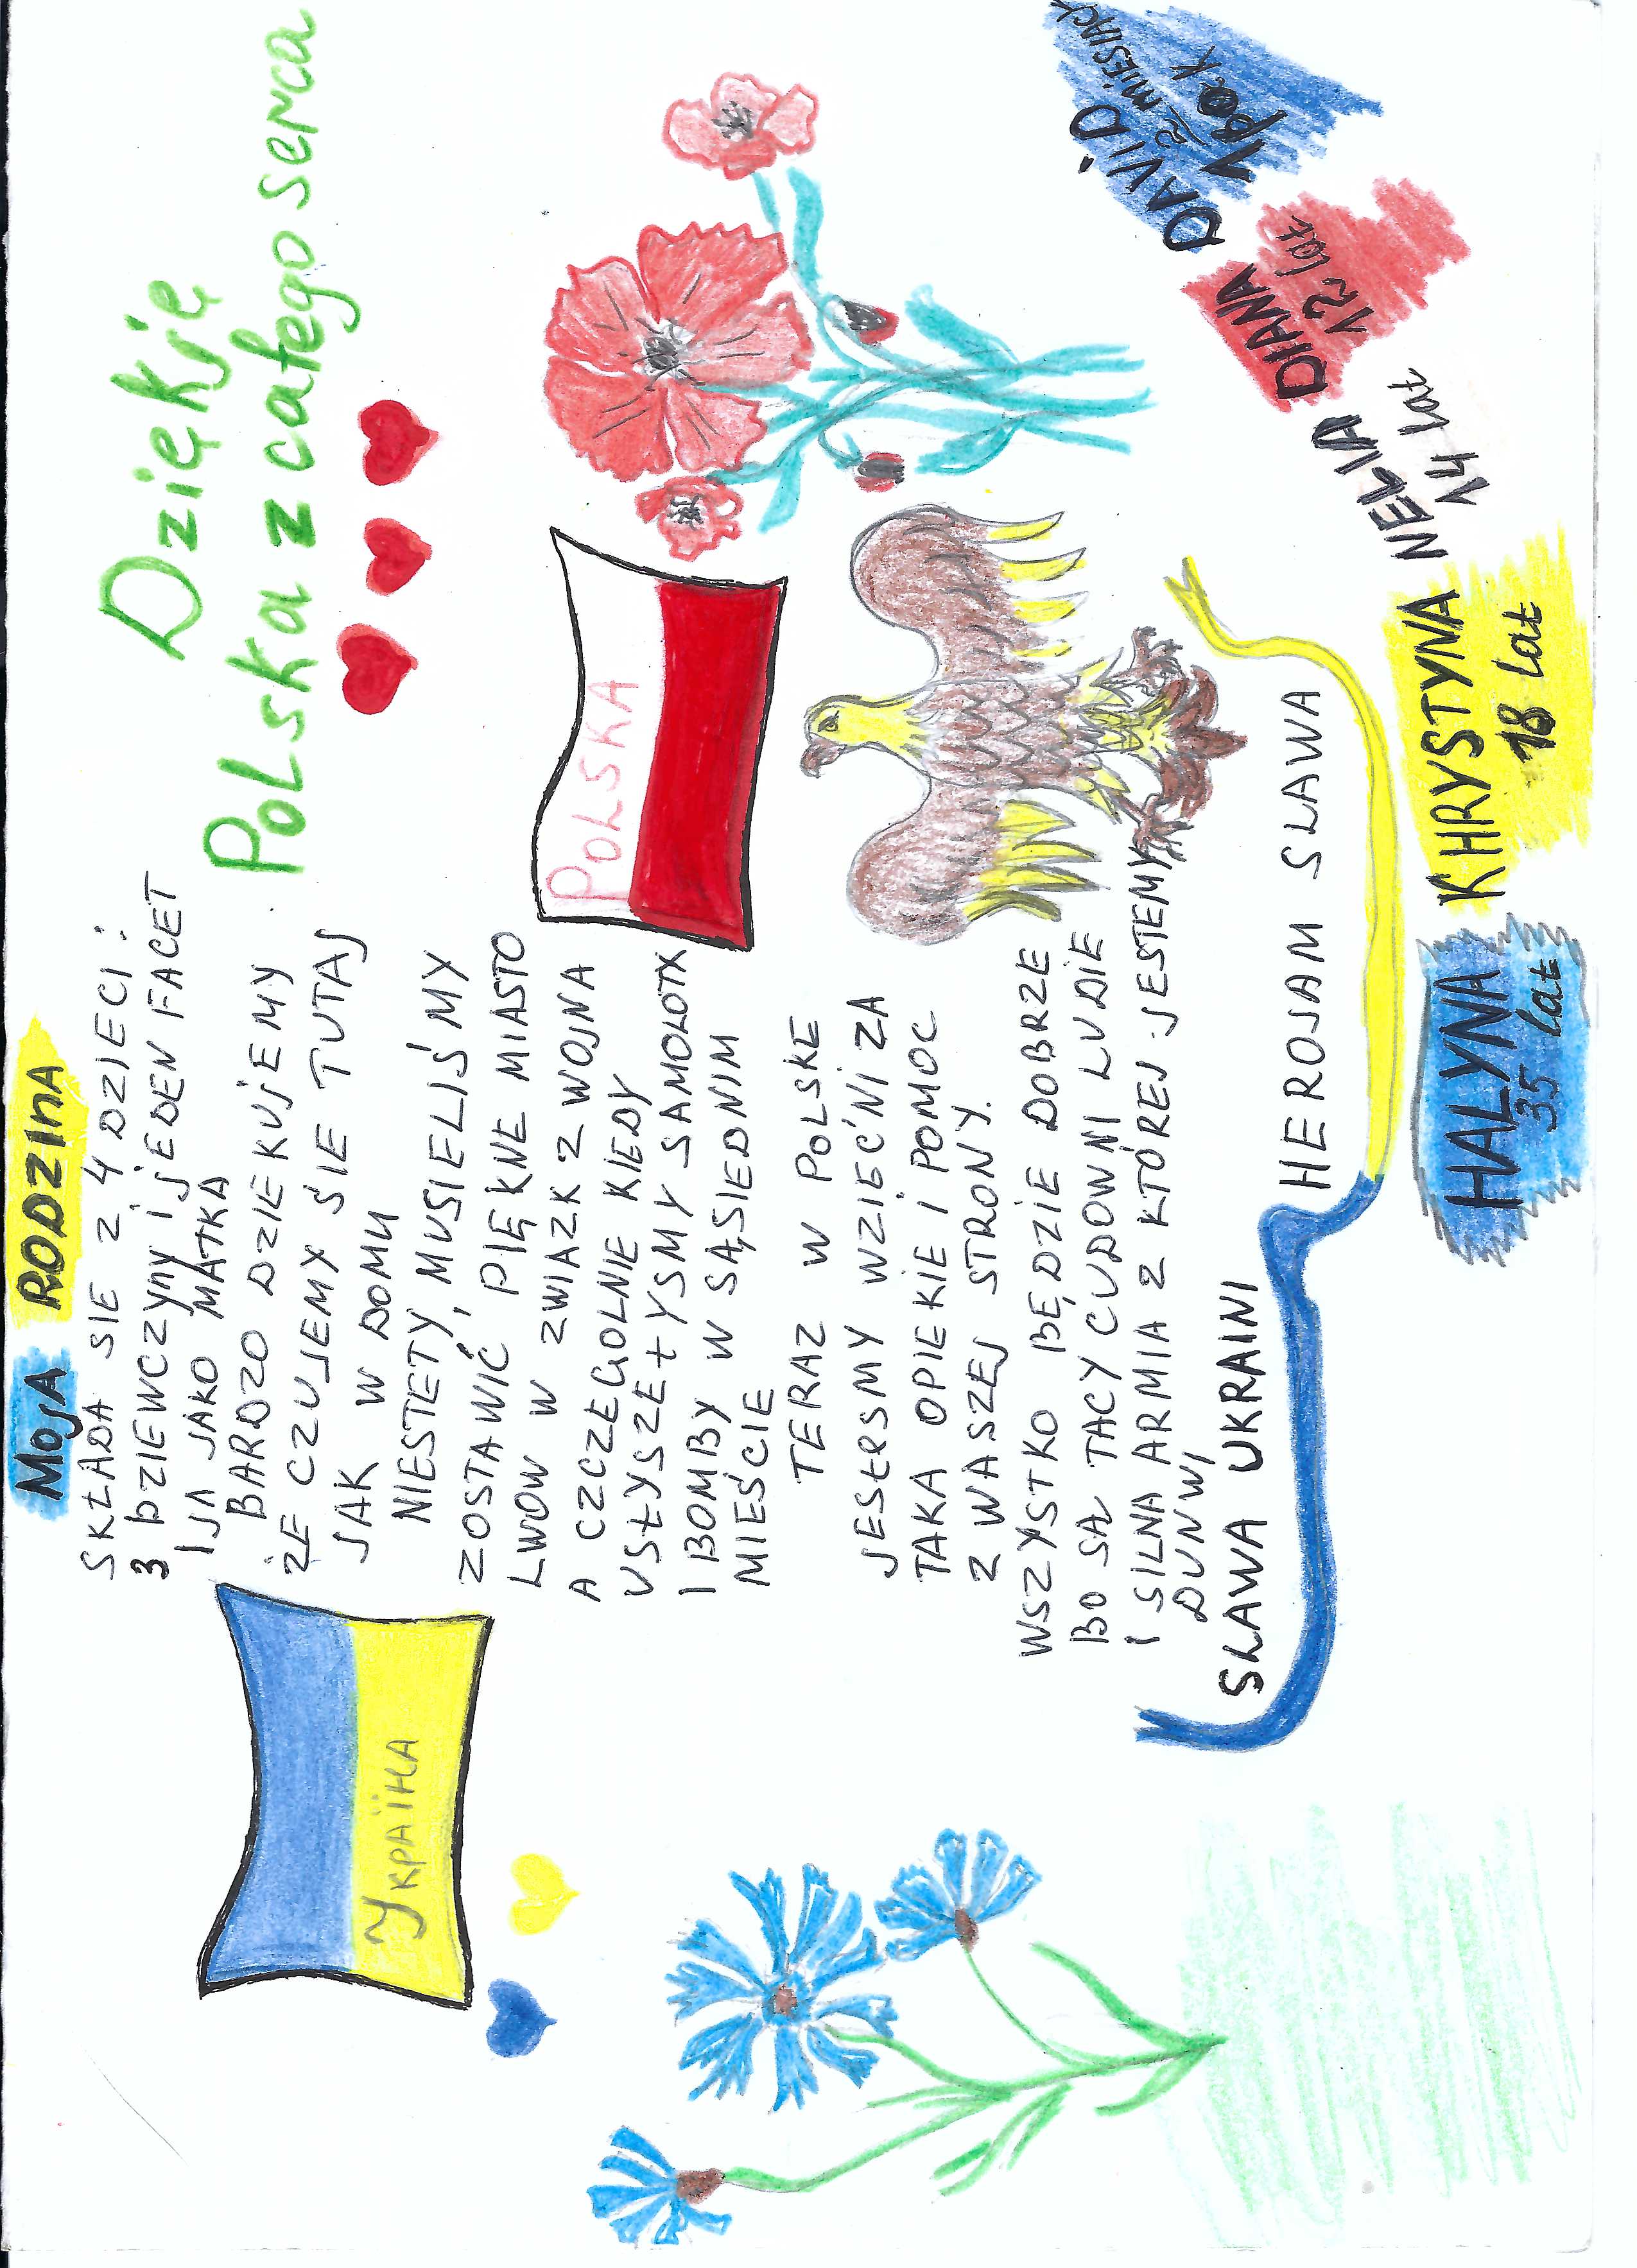 MOJA RODZINA
SKŁADA SIE Z 4 DZIECI:
3 DZIEWCZYNY I JEDEN FACET
I JA JAKO MATKA
BARDZO DZIEKUJEMY
ŻE CZUJEMY SIE TUTAJ
JAK W DOMU
NIESTETY, MUSIELIŚMY
ZOSTAWIĆ PIĘKNE MIASTO
LWOW W ZWIAZK Z WOJNA
A CZCZEGOLNIE KIEDY
USŁYSZEŁYSMY SAMOLOTY
I BOMBY W SĄSIEDNIM
MIEŚCIE
TERAZ W POLSKE
JESŁESMY WZIEĆNI ZA
TAKA OPIEKIE I POMOC
Z WASZEJ STRONY.
WSZYSTKO BĘDZIE DOBRZE
BO SA TACY CUDOWNI LUDIE
I SILNA ARMIA Z KTÓREJ JESTEMY
DUNWI
SLAWA UKRAINI
HEROJAM SLAWA
Dziękję
Polska z całego serca
Україна
POLSKA
HALYNA
35 lat
KHRYSTYNA
18 lat
NELIA
14 lat
DIANA
12 lat
DAVID
2 MIESIACK
1 рок